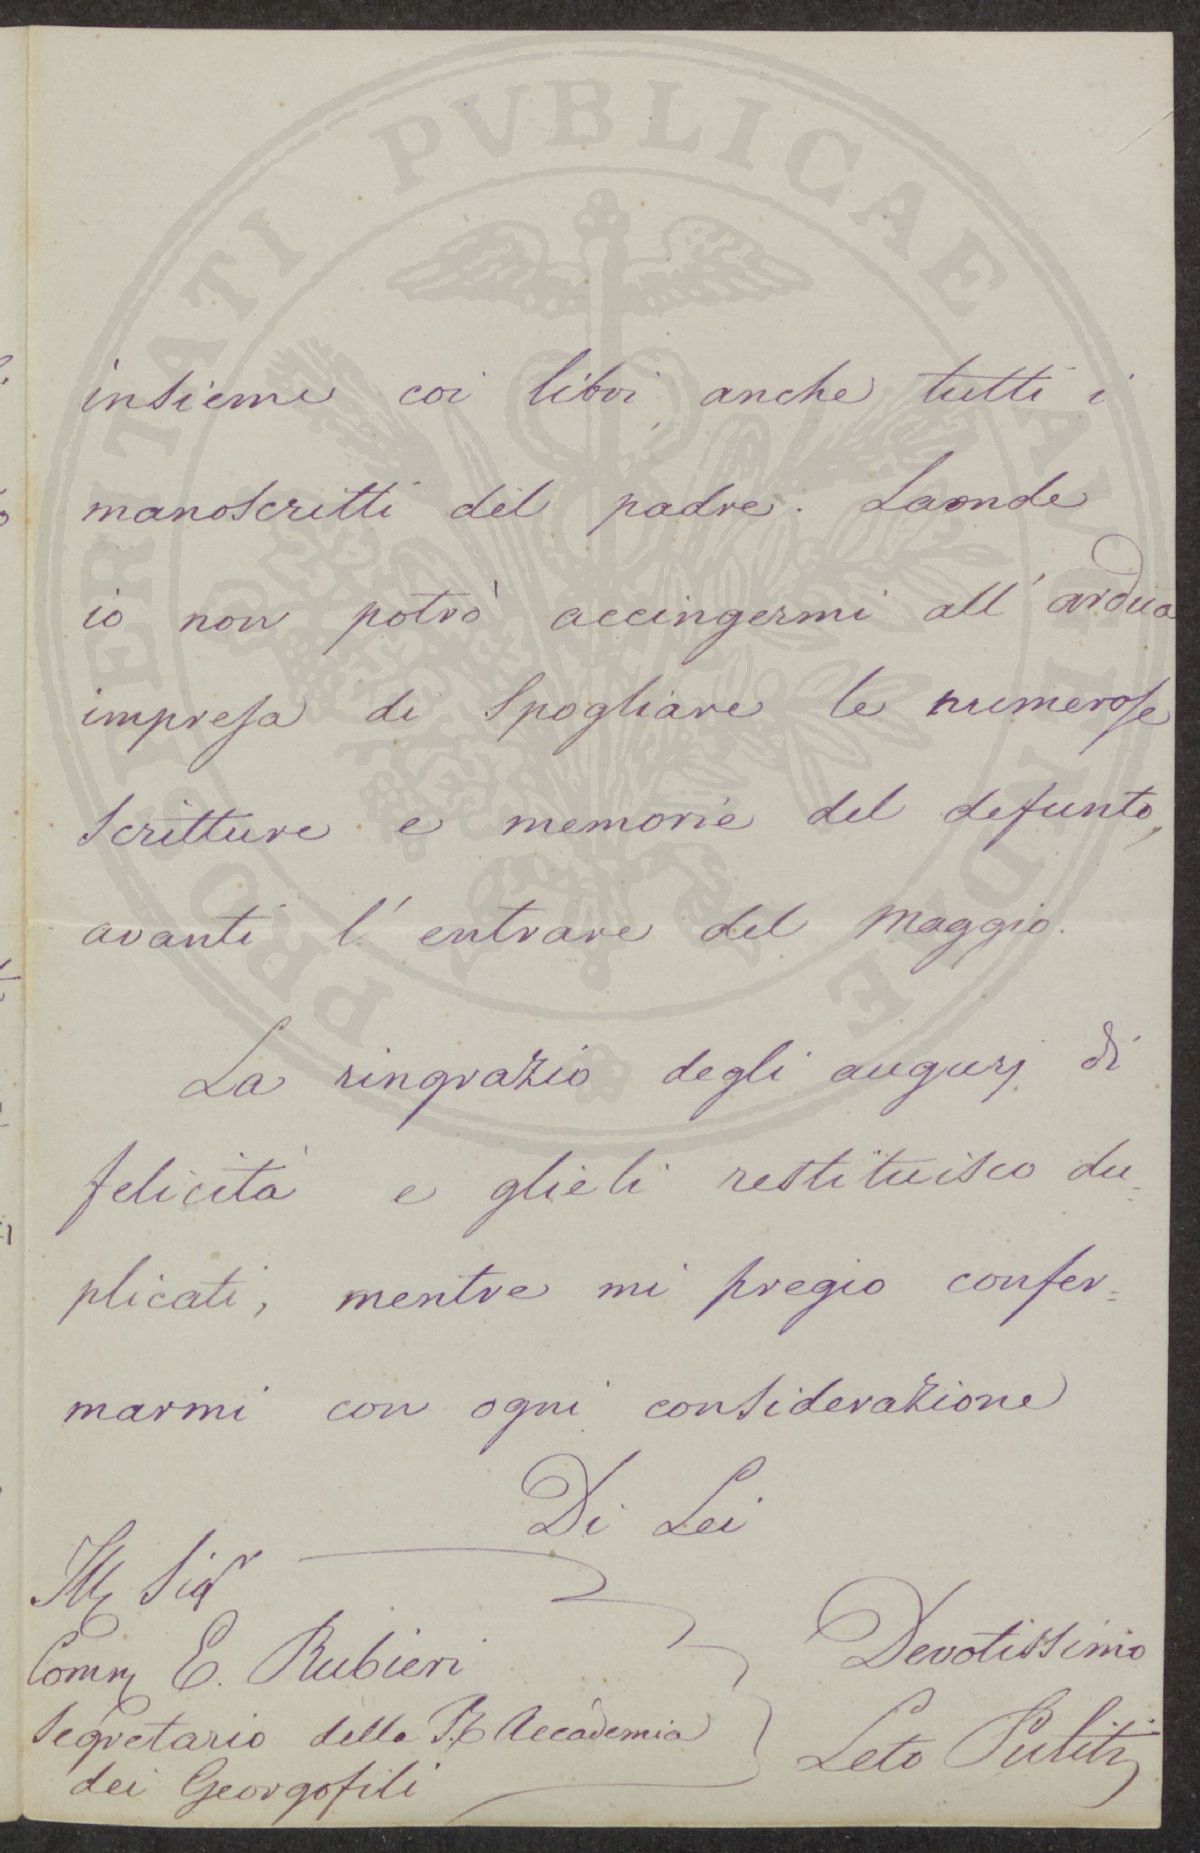 PROSPERITATI PVBLICAE AVGENDAE
insieme coi libri anche tutti i
manoscritti del padre. Laonde
io non potrò accingermi all'ardua
impresa di spogliare le numerose
scritture e memorie del defunto,
avanti l'entrare del Maggio.
La ringrazio degli augurj di
felicità e glieli restituisco du=
plicati, mentre mi pregio confer=
marmi con ogni considerazione
Di Lei
Ill Sigr
Comm E. Rubieri
Segretario della R. Accademia
dei Georgofili
Devotissimo
Leto Puliti